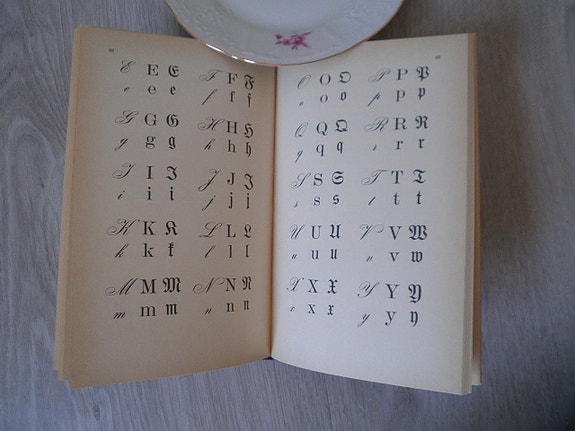 E E E F F F
e e e f f f
G G G H H H
g g g h h h
I I I J J J
i i i j j j
K K K L L L
k k k l l l
M M M N N N
m m m n n n
O O O P P P
o o o p p p
Q Q Q R R R
q q q r r r
S S S T T T
s s s t t t
U U U V V W
u u u v v w
X X X Y Y Y
x x x y y y